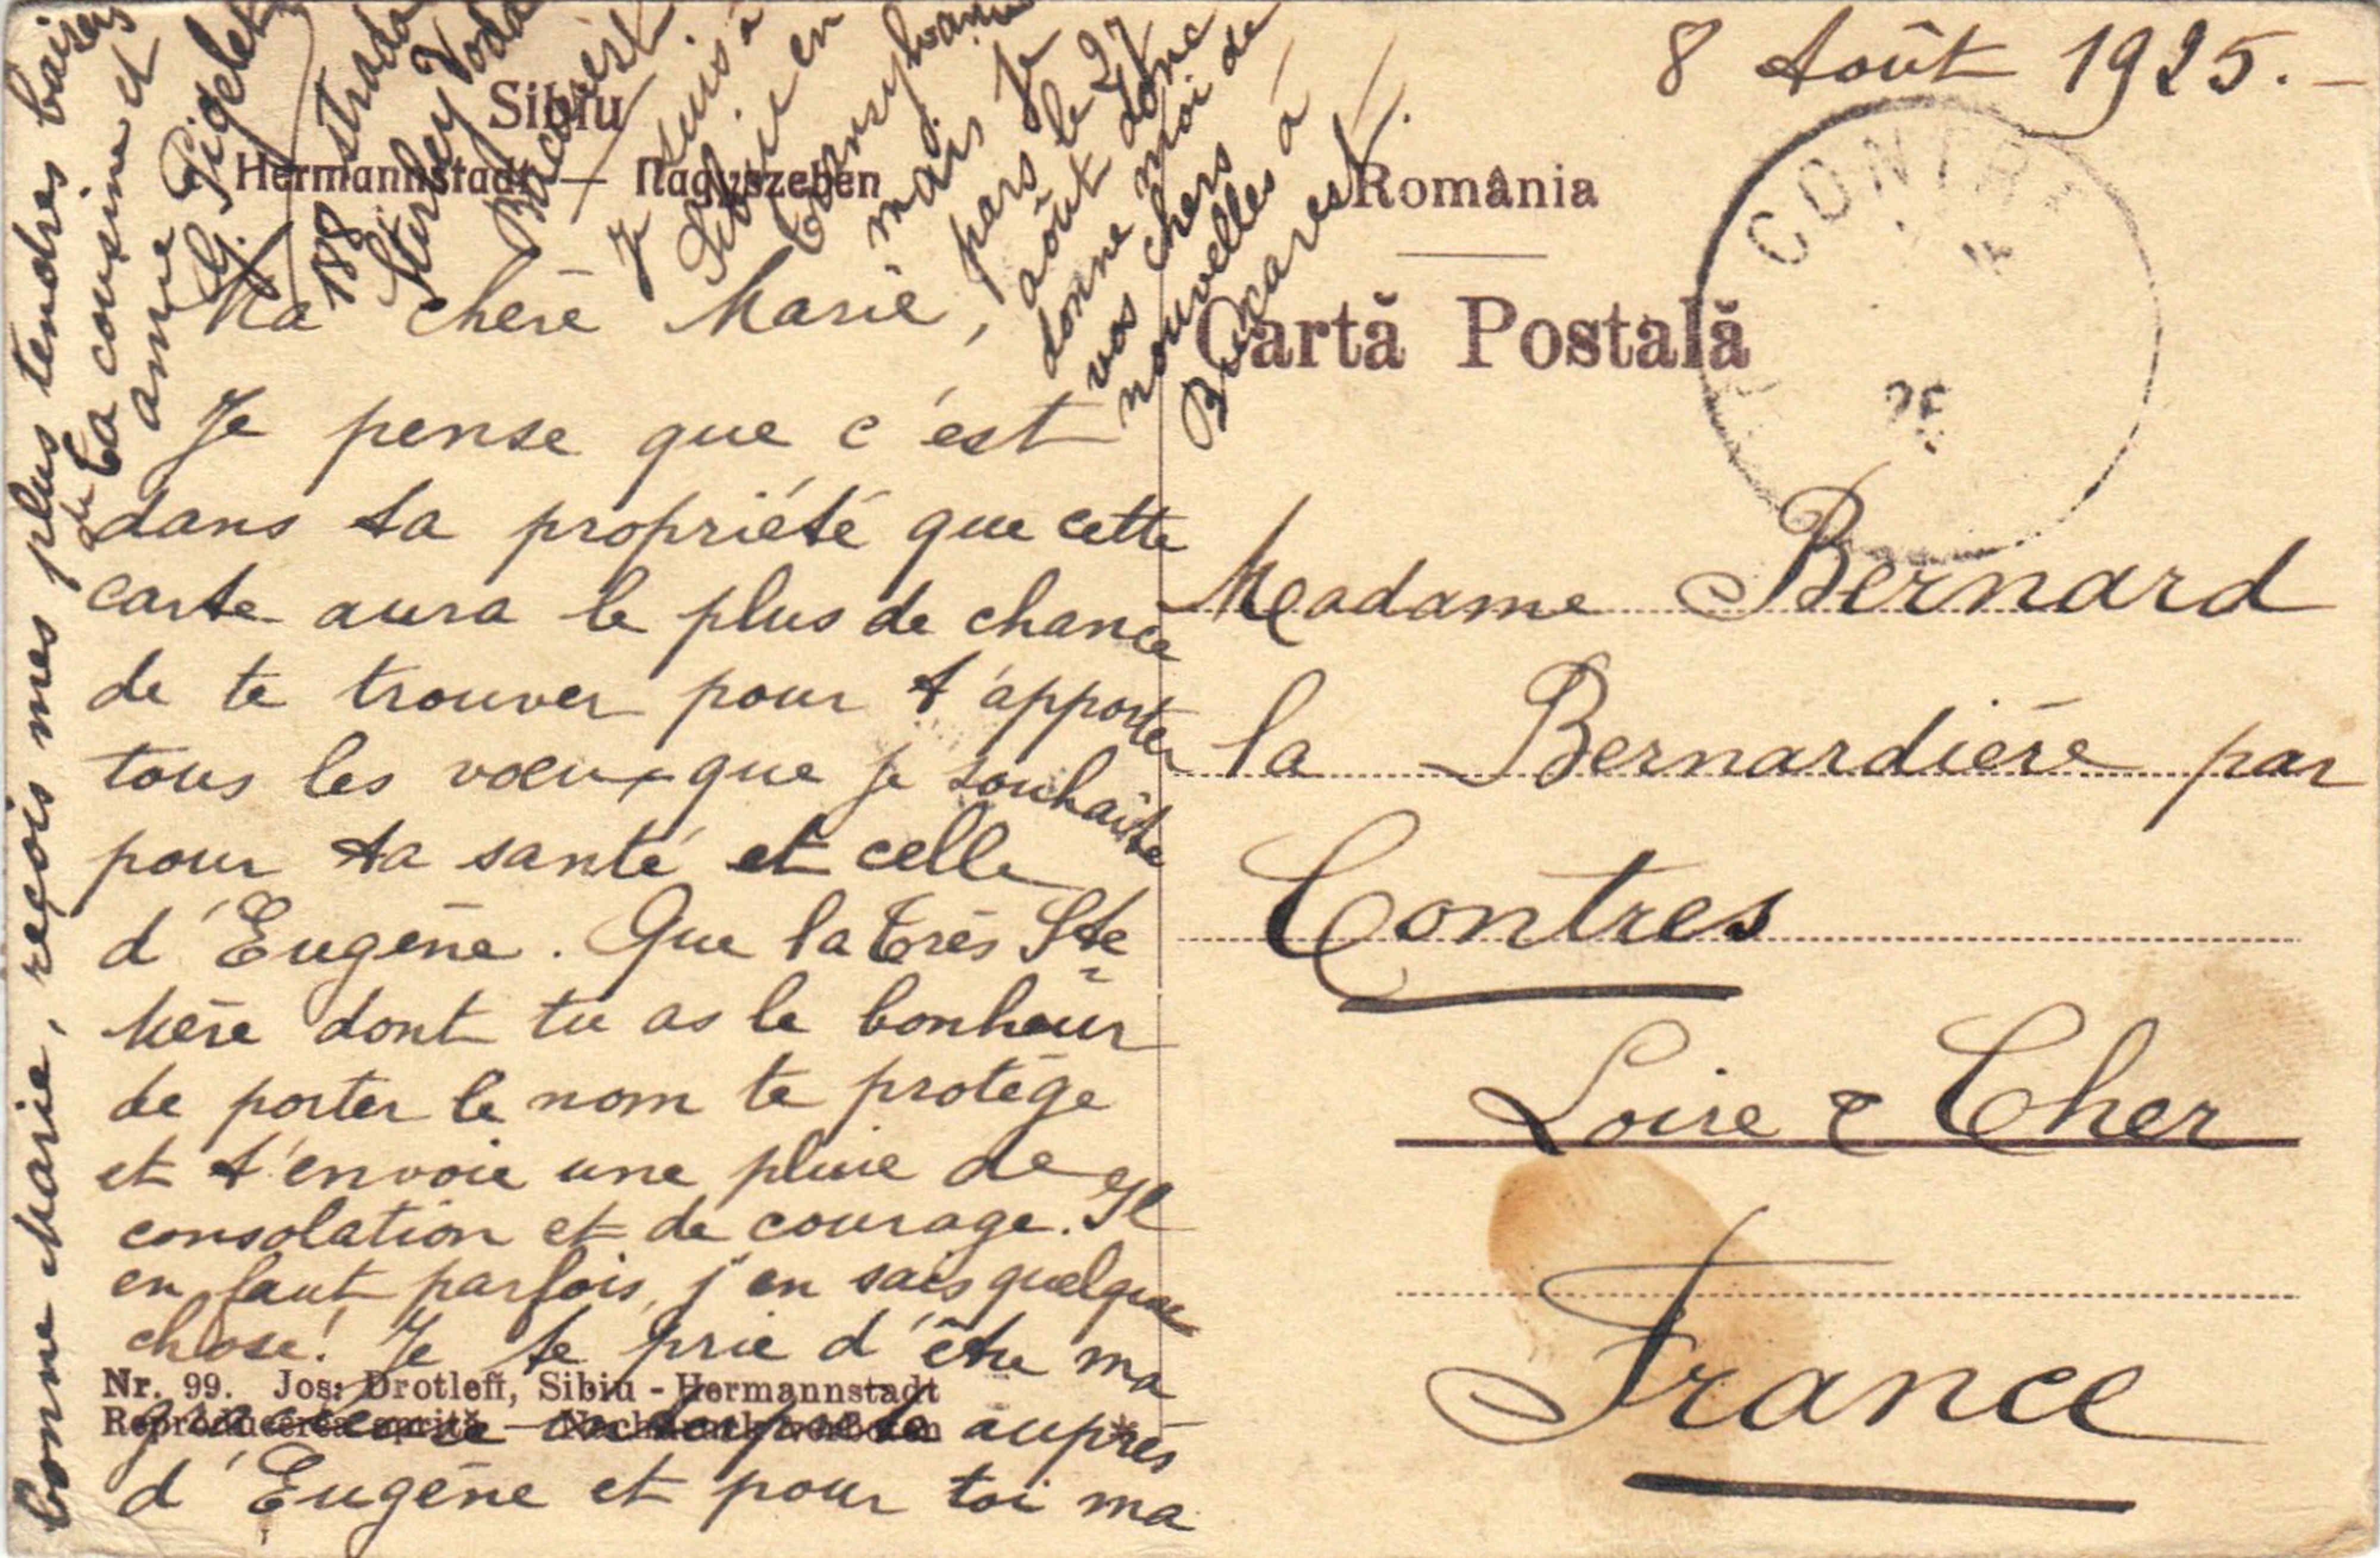 8 Août 1925.-
Sibiu
Hermannstadt — Nagyszeben
România
Cartă Postală
CONTRES
25
Ma chère Marie,
Je pense que c'est
dans ta propriété que cette
carte aura le plus de chance
de te trouver pour t'apporter
tous les vœux que je souhaite
pour ta santé et celle
d'Eugène. Que la très Ste
Mère dont tu as le bonheur
de porter le nom te protège
et t'envoie une pluie de
consolation et de courage. Il
en faut parfois, j'en sais quelque
chose! Je te prie d'être ma
auprès
d'Eugène et pour toi ma
bonne Marie, reçois mes plus tendres baisers
de
ta cousine et
amie
G. Pigelet
188 strada
Stirbey Voda
Bucarest
Je suis à
Sibiu en
Transylvanie
mais je
pars le 27
août donc
donne moi de
vos chers
nouvelles à
Bucarest.
Madame Bernard
la Bernardière par
Contres
Loire & Cher
France
Nr. 99. Jos: Drotleff, Sibiu - Hermannstadt
Reproducerea oprită — Nachdruck verboten *